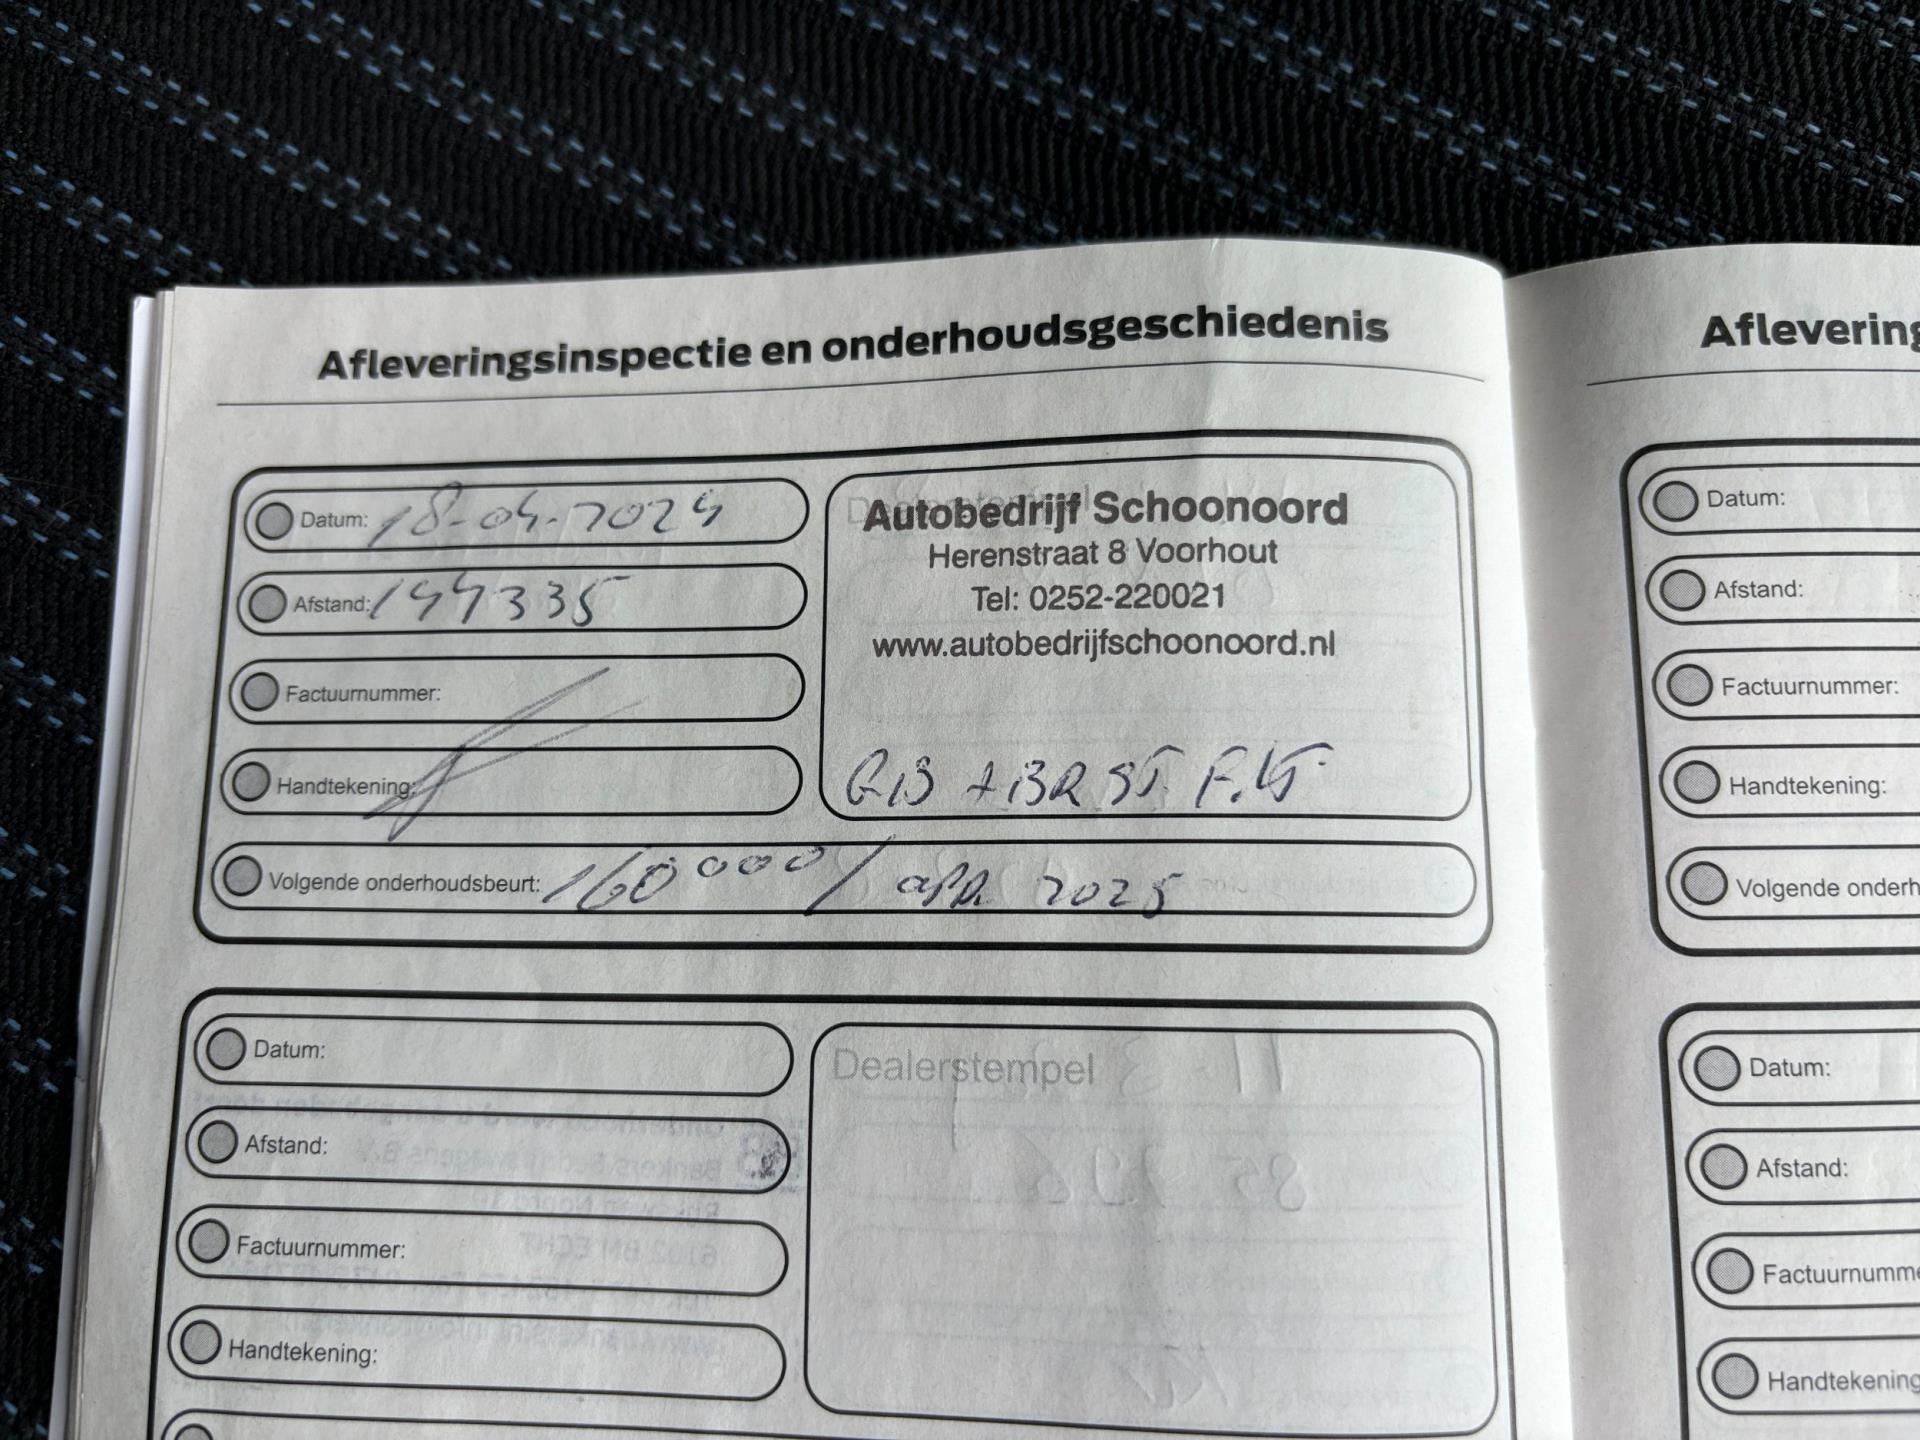 Afleveringsinspectie en onderhoudsgeschiedenis
Datum: 18-04-2024
Afstand: 144335
Factuurnummer:
Handtekening:
Dealerstempel
Autobedrijf Schoonoord
Herenstraat 8 Voorhout
Tel: 0252-220021
www.autobedrijfschoonoord.nl
GB + BR ST. F.
Volgende onderhoudsbeurt: 160000 / apr 2025
Datum:
Afstand:
Factuurnummer:
Handtekening:
Dealerstempel
Aflevering
Datum:
Afstand:
Factuurnummer:
Handtekening:
Volgende onderh
Datum:
Afstand:
Factuurnumme
Handtekening